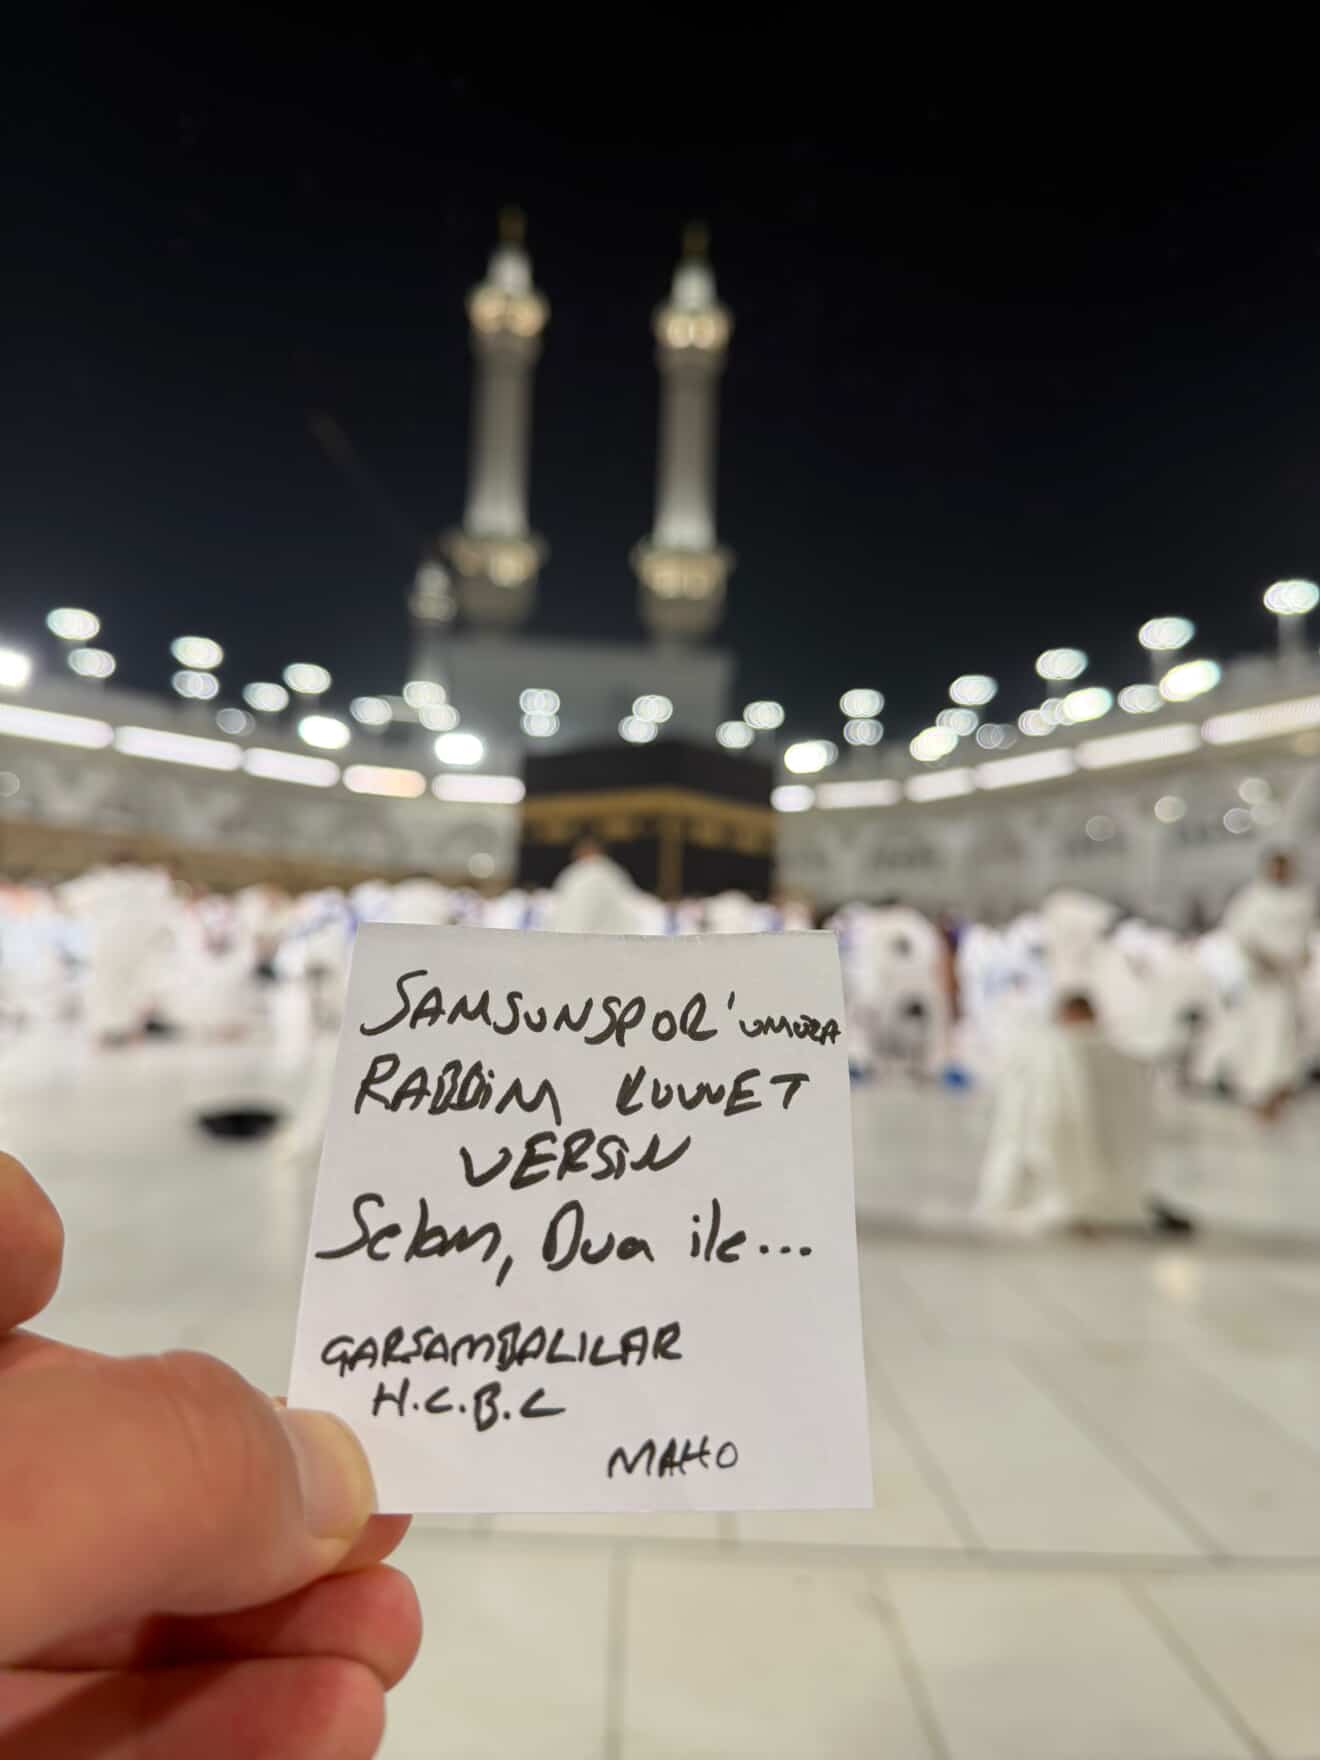 SAMSUNSPOR'UMUZA
RABBİM KUVVET
VERSİN
Selam, Dua ile...
GARSAMBALILAR
H.C.B.C
MAHO